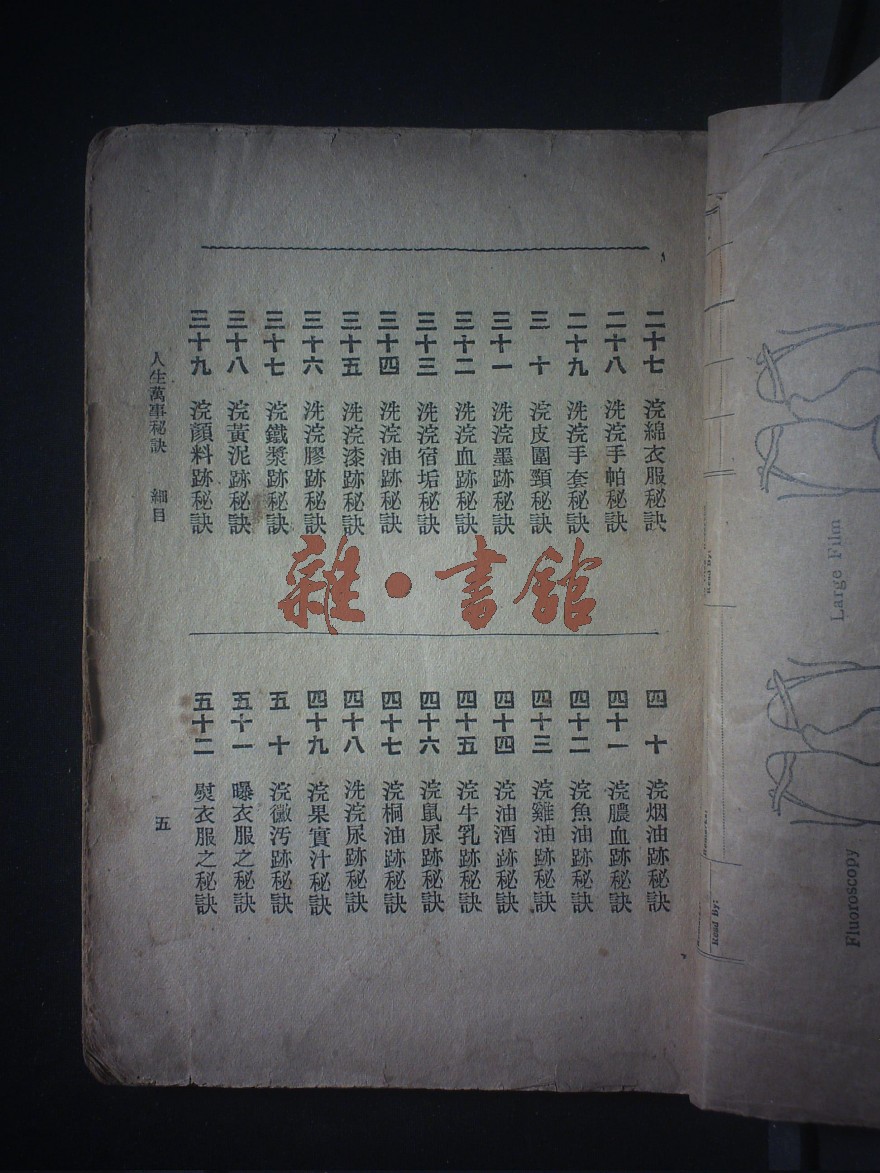 二十七 浣綿衣服秘訣
二十八 洗浣手帕秘訣
二十九 洗浣手套秘訣
三十 浣皮圍頸秘訣
三十一 洗浣墨跡秘訣
三十二 洗浣血跡秘訣
三十三 洗浣宿垢秘訣
三十四 洗浣油跡秘訣
三十五 洗浣漆跡秘訣
三十六 洗浣膠跡秘訣
三十七 浣鐵漿跡秘訣
三十八 浣黃泥跡秘訣
三十九 浣顏料跡秘訣
四十 浣烟油跡秘訣
四十一 浣膿血跡秘訣
四十二 浣魚油跡秘訣
四十三 浣雞油跡秘訣
四十四 浣油酒跡秘訣
四十五 浣牛乳跡秘訣
四十六 浣鼠尿跡秘訣
四十七 浣桐油跡秘訣
四十八 洗浣尿跡秘訣
四十九 浣果實汁秘訣
五十 浣黴汚跡秘訣
五十一 曝衣服之秘訣
五十二 熨衣服之秘訣
人生萬事秘訣 細目
五
雜·書館
Large Film
Fluoroscopy
Read By:
Read By: